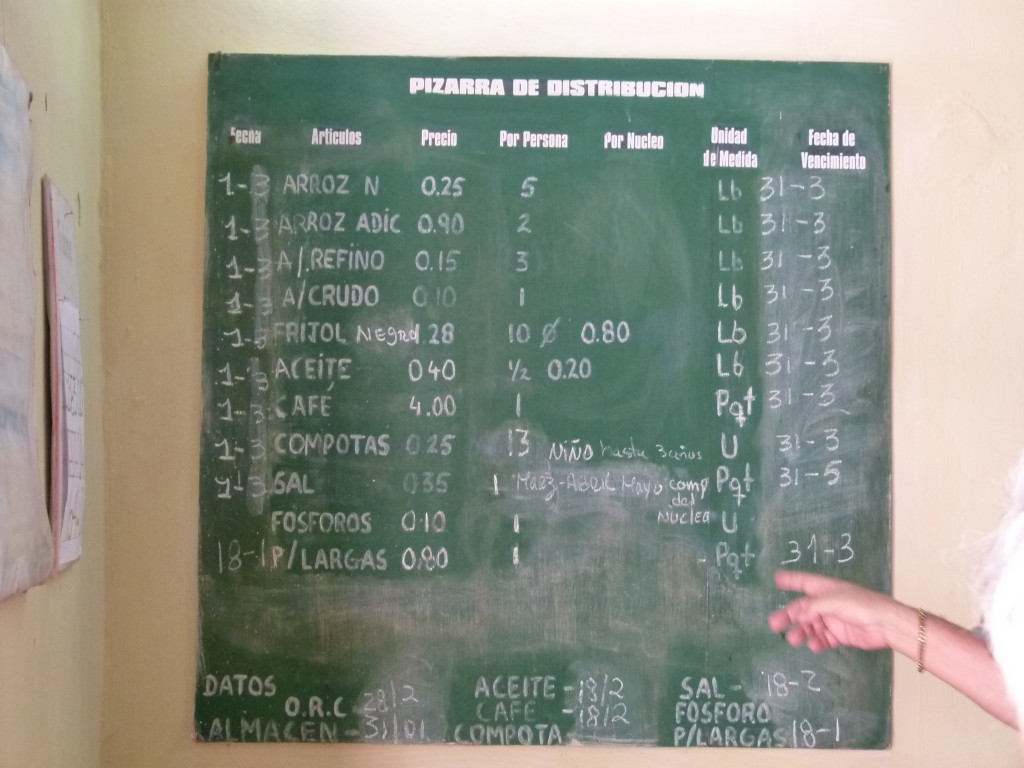 PIZARRA DE DISTRIBUCION
Fecha Articulos Precio Por Persona Por Nucleo Unidad de Medida Fecha de Vencimiento
1-3 ARROZ N 0.25 5 Lb 31-3
1-3 ARROZ ADIC 0.90 2 Lb 31-3
1-3 A/.REFINO 0.15 3 Lb 31-3
1-3 A/CRUDO 0.10 1 Lb 31-3
1-3 FRIJOL NEgro .28 10 Ø 0.80 Lb 31-3
1-3 ACEITE 040 ½ 0.20 Lb 31-3
1-3 CAFÉ 4.00 1 Pqt 31-3
1-3 COMPOTAS 0.25 13 NIÑO hasta 3 años U 31-3
1-3 SAL 035 1 MaRz-ABRIL Mayo comp del NUCLEA Pqt 31-5
FOSFOROS 0.10 1 U
18-1 P/LARGAS 0.80 1 - Pqt 31-3
DATOS ACEITE - 18/2 SAL - 18-2
O.R.C - 28/2 CAFE - 18/2 FOSFORO
ALMACEN - 31/01 COMPOTA- P/LARGAS 18-1